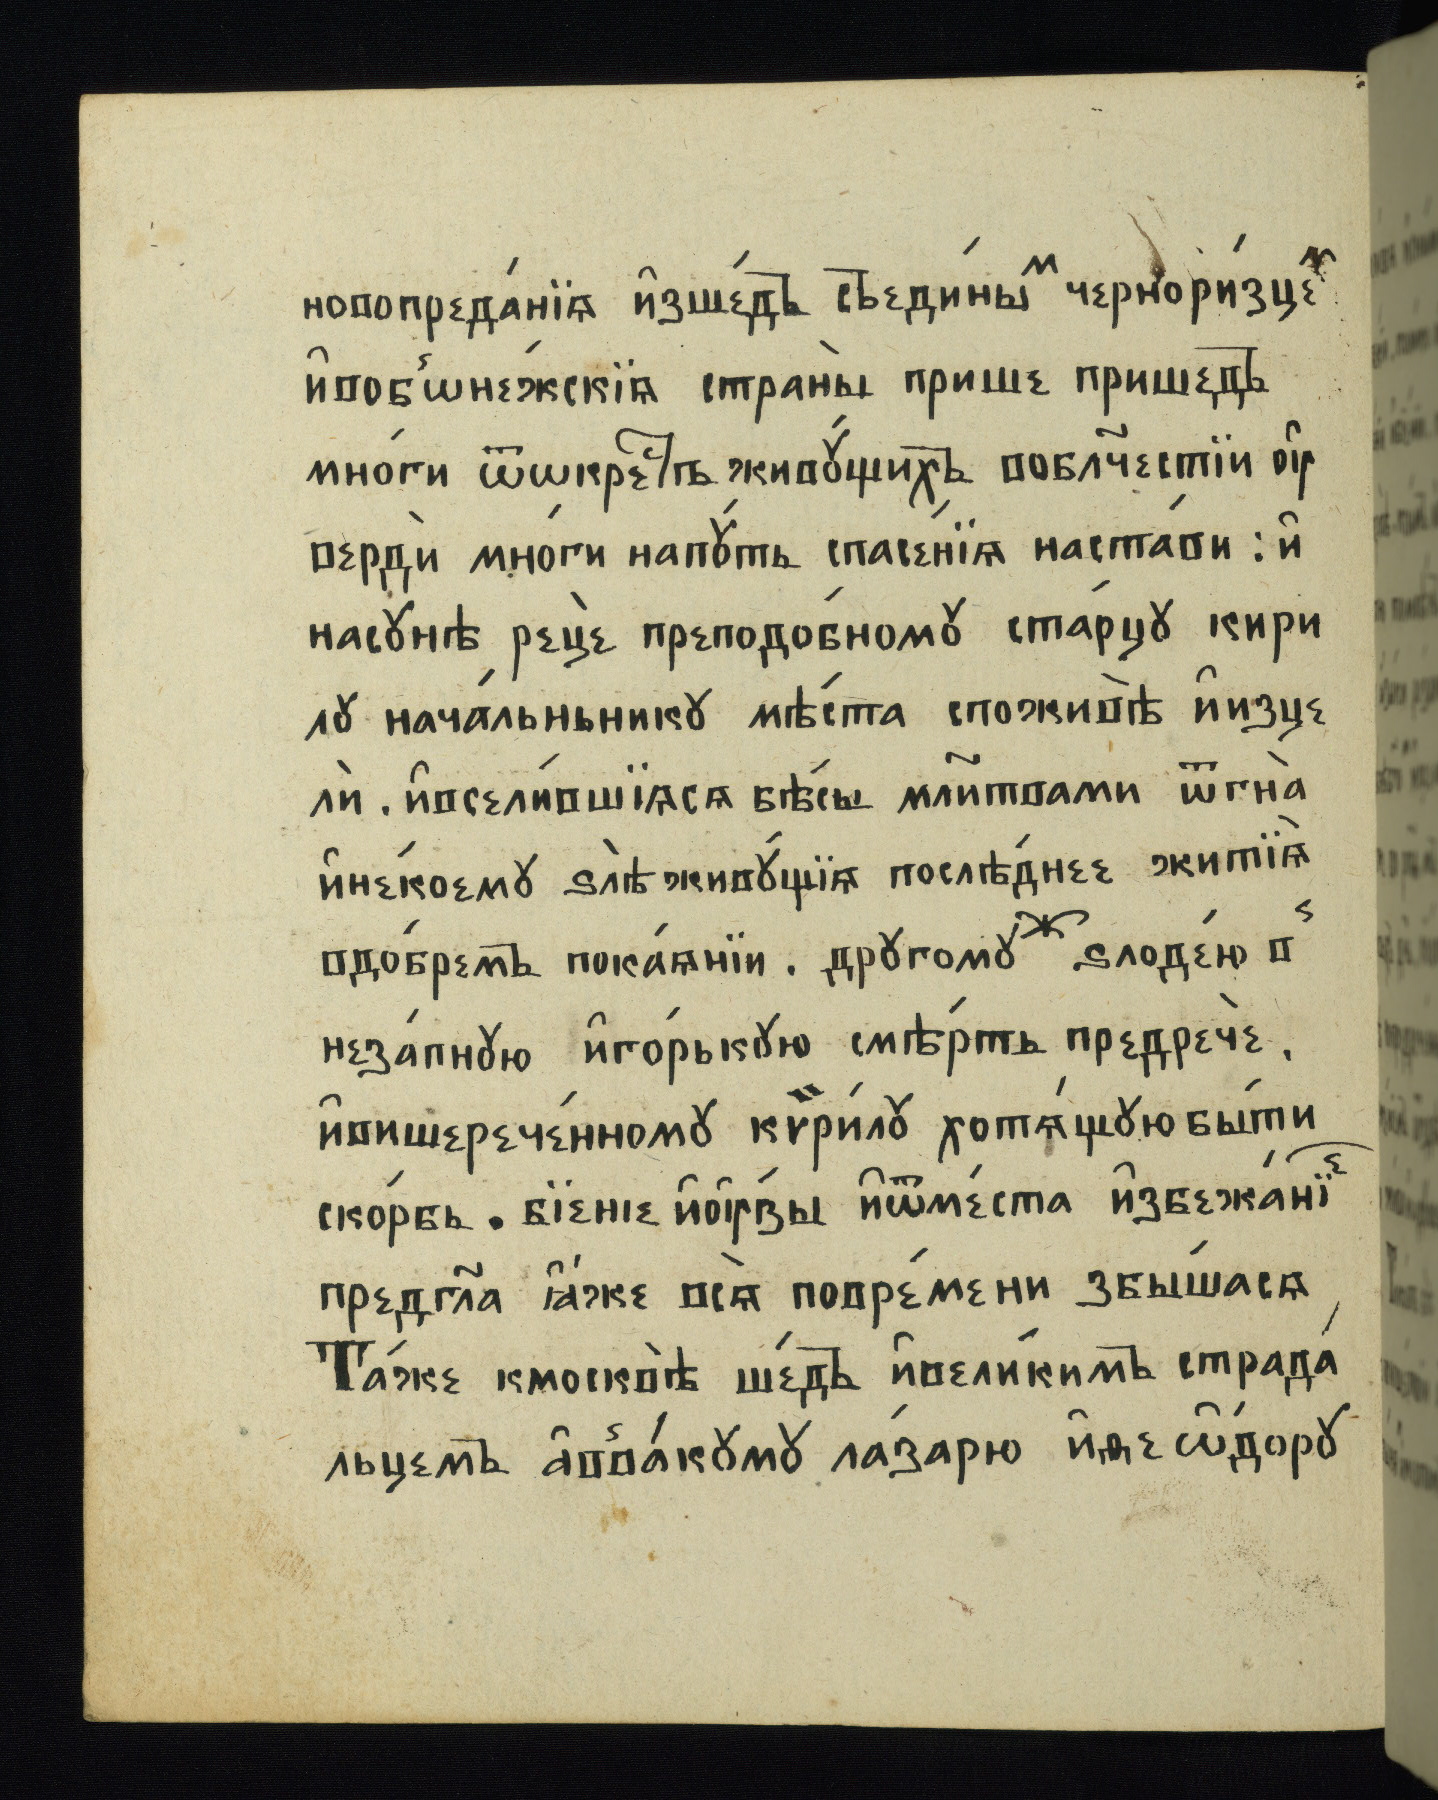 новопреда́нїѧ и҆зше́дъ съеди́ны ͫ черно̀ри́зцеⷨ
и҆воб̾ѡне́жскїѧ страны̀ прише пришедъ
мно́ги ѿѡкре́стъ живꙋ́щихъ вобл҃честїи ᲂу҆
вердѝ мно́ги напꙋ́ть спасе́нїѧ наста́ви : и҆
насꙋнѣ рецѐ преподо́бномꙋ ста́рцꙋ кири
лꙋ нача́льньникꙋ мѣ́ста споживѣ̀ и҆изце
лѝ . и҆всели́вшїѧсѧ бѣ́сы мл҃итвами ѿгна̀
и҆не́коемꙋ ѕлѣ̀ живꙋ́щїѧ послѣ́днее житїѧ̀
вдо́бремъ пока́ѧнїи . дрꙋгомꙋ́ⷤ ѕлоде́ю в̾
неза́пнꙋю и҆го́рькꙋю смѣ́рть предречѐ .
и҆вишерече́нномꙋ кѷри́лꙋ хотѧ́щꙋю бы́ти
ско́рбь . бїенїе и҆ᲂу҆́зы и҆ѿме́ста и҆збежа́нїⷷ
предгл҃а ꙗ҆́же всѧ̀ повре́мени збы́шасѧ
Та́же кмосквѣ̀ ше́дъ и҆вели́кимъ страда́
льцемъ а҆в̾ва́кꙋмꙋ ла́зарю и҆ѳеѡ҆́дорꙋ